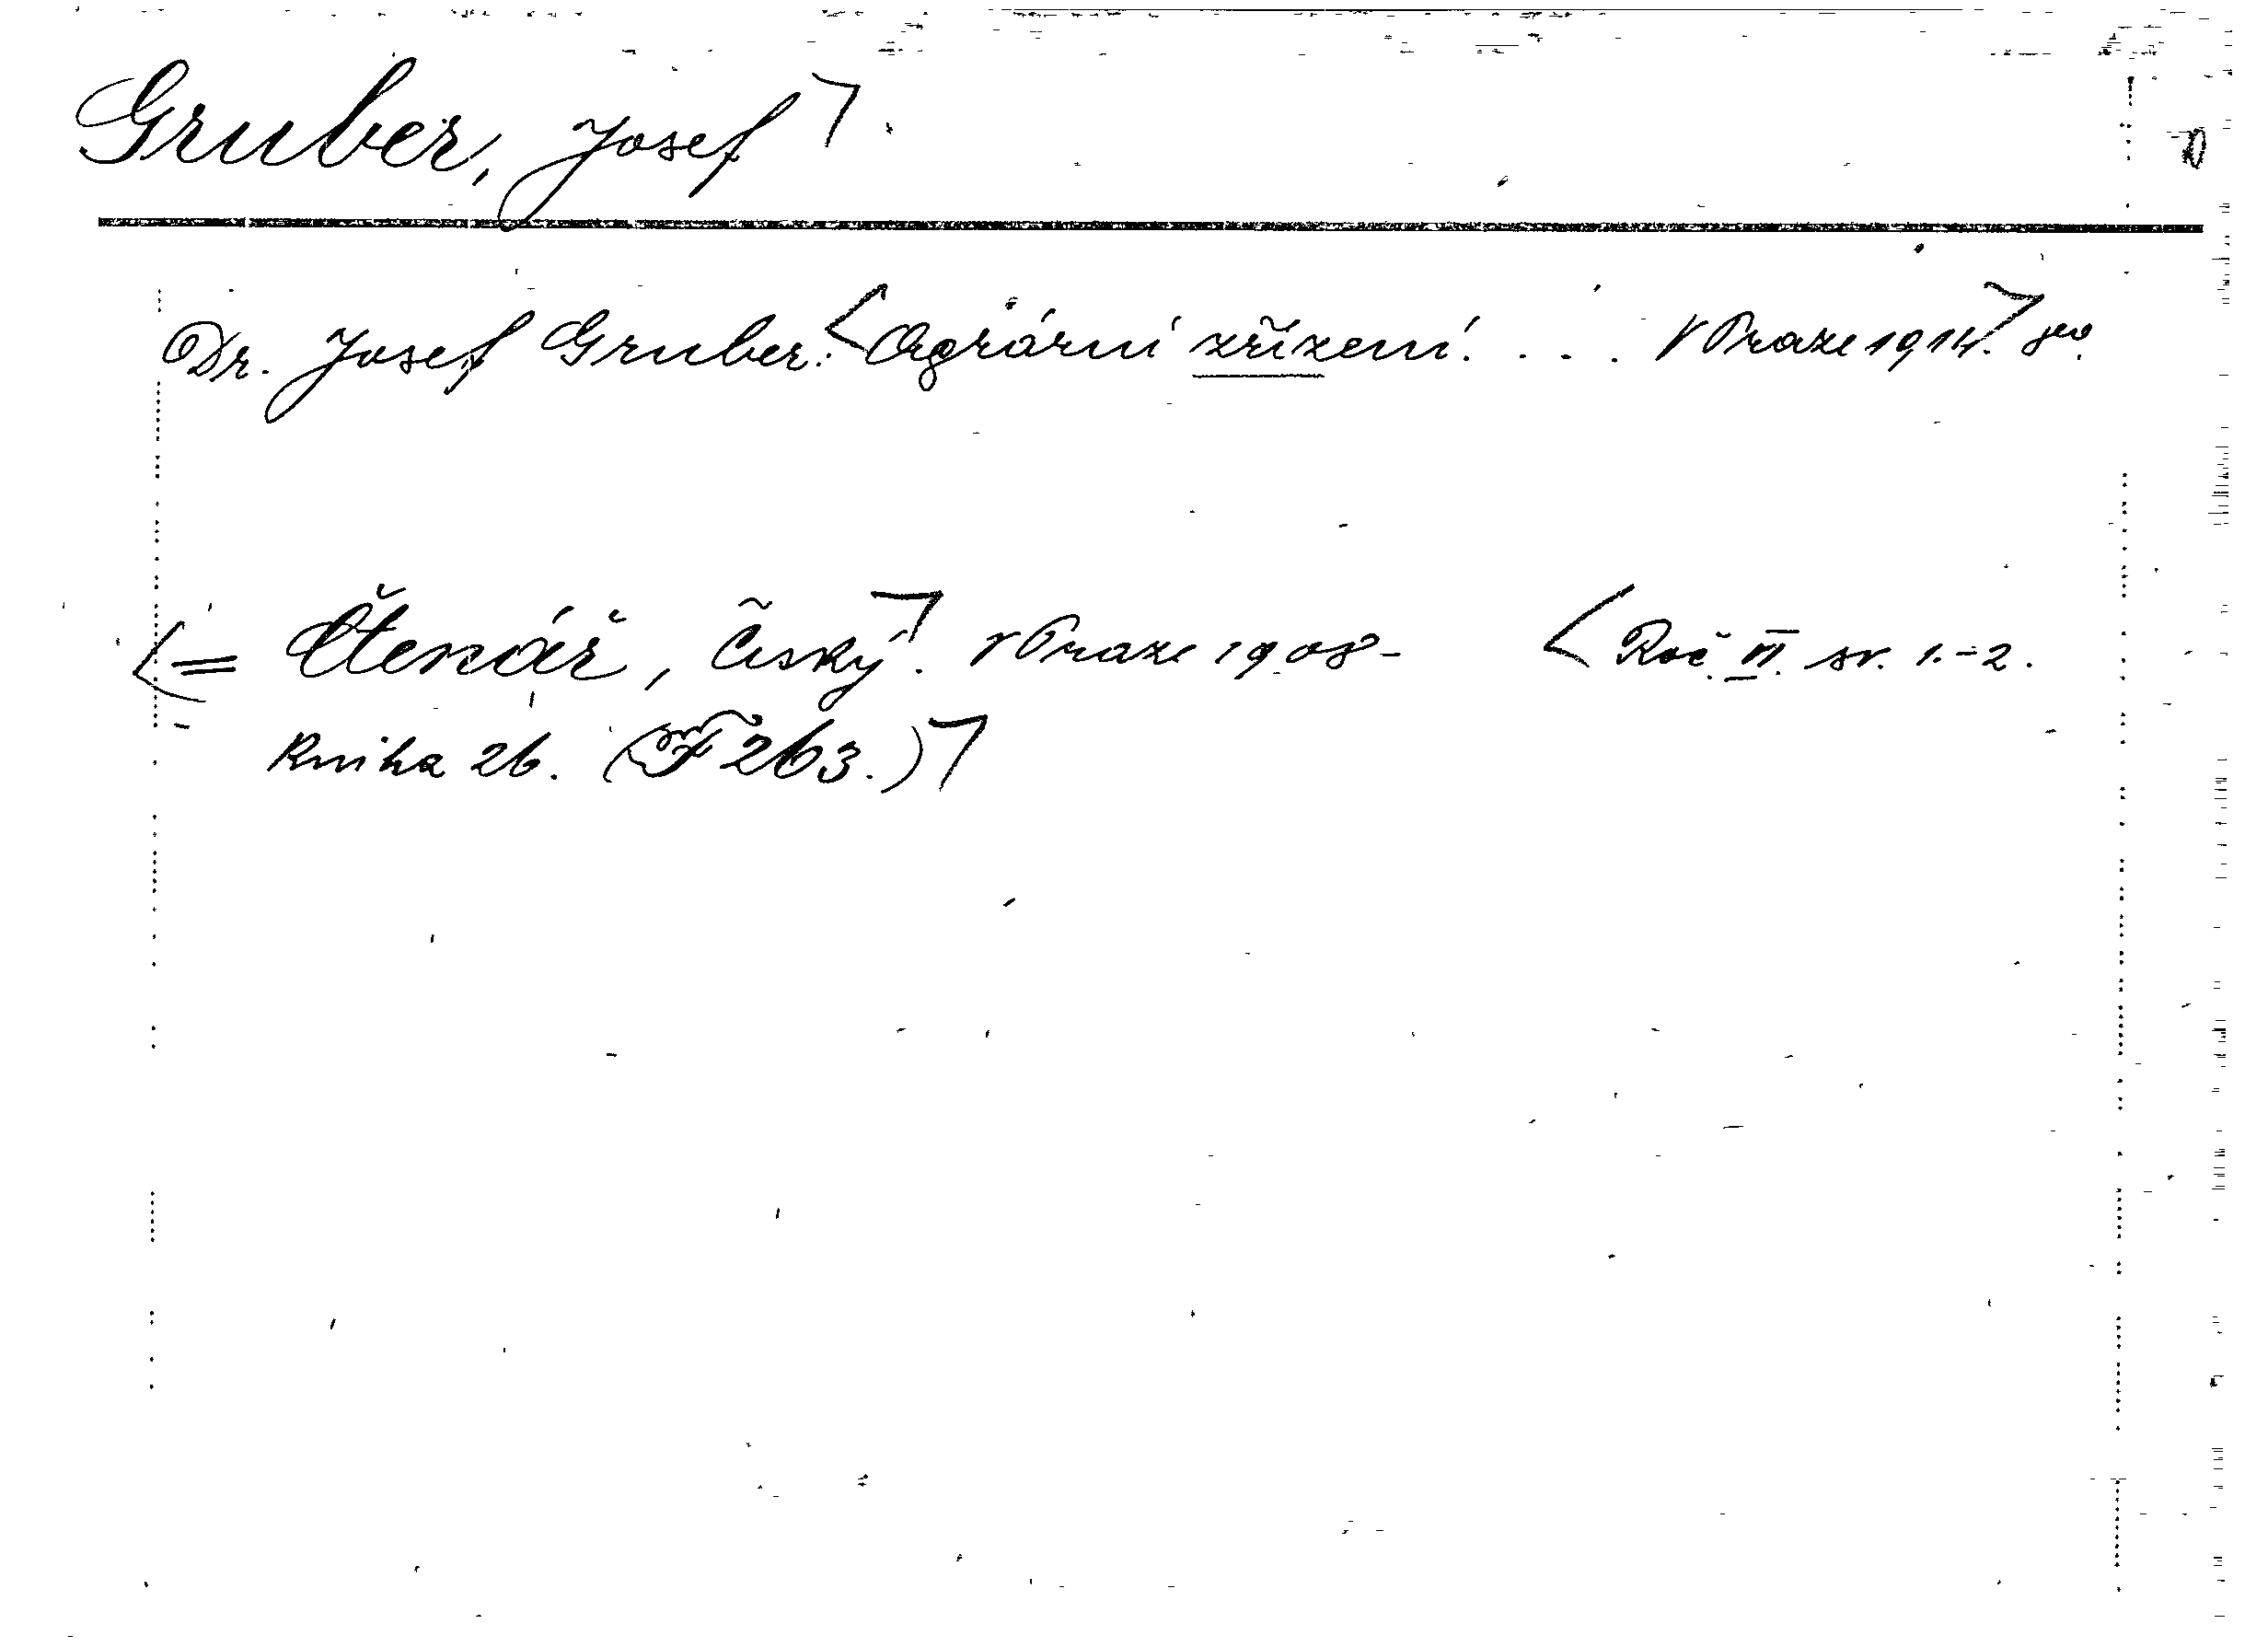 Gruber, Josef
Dr. Josef Gruber: Agrární zřízení. . . . V Praze 1914. 8vo.
= Čtenář, Český. V Praze 1908- Roč. VI. sv. 1.-2.
Kniha 26. (F 263.)